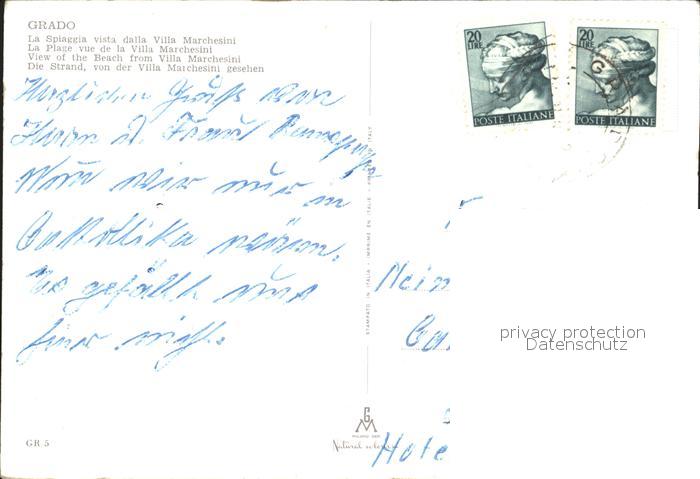 GRADO
La Spiaggia vista dalla Villa Marchesini
La Plage vue de la Villa Marchesini
View of the Beach from Villa Marchesini
Die Strand, von der Villa Marchesini gesehen
Herzlichen Gruß von
Herrn u. Frau
Wenn wir nur in
Cattollika wären.
Es gefällt uns
hier nicht.
20
LIRE
POSTE ITALIANE
20
LIRE
POSTE ITALIANE
STAMPATO IN ITALIA - IMPRIMÉ EN ITALIE
Hote
privacy protection
Datenschutz
GR 5